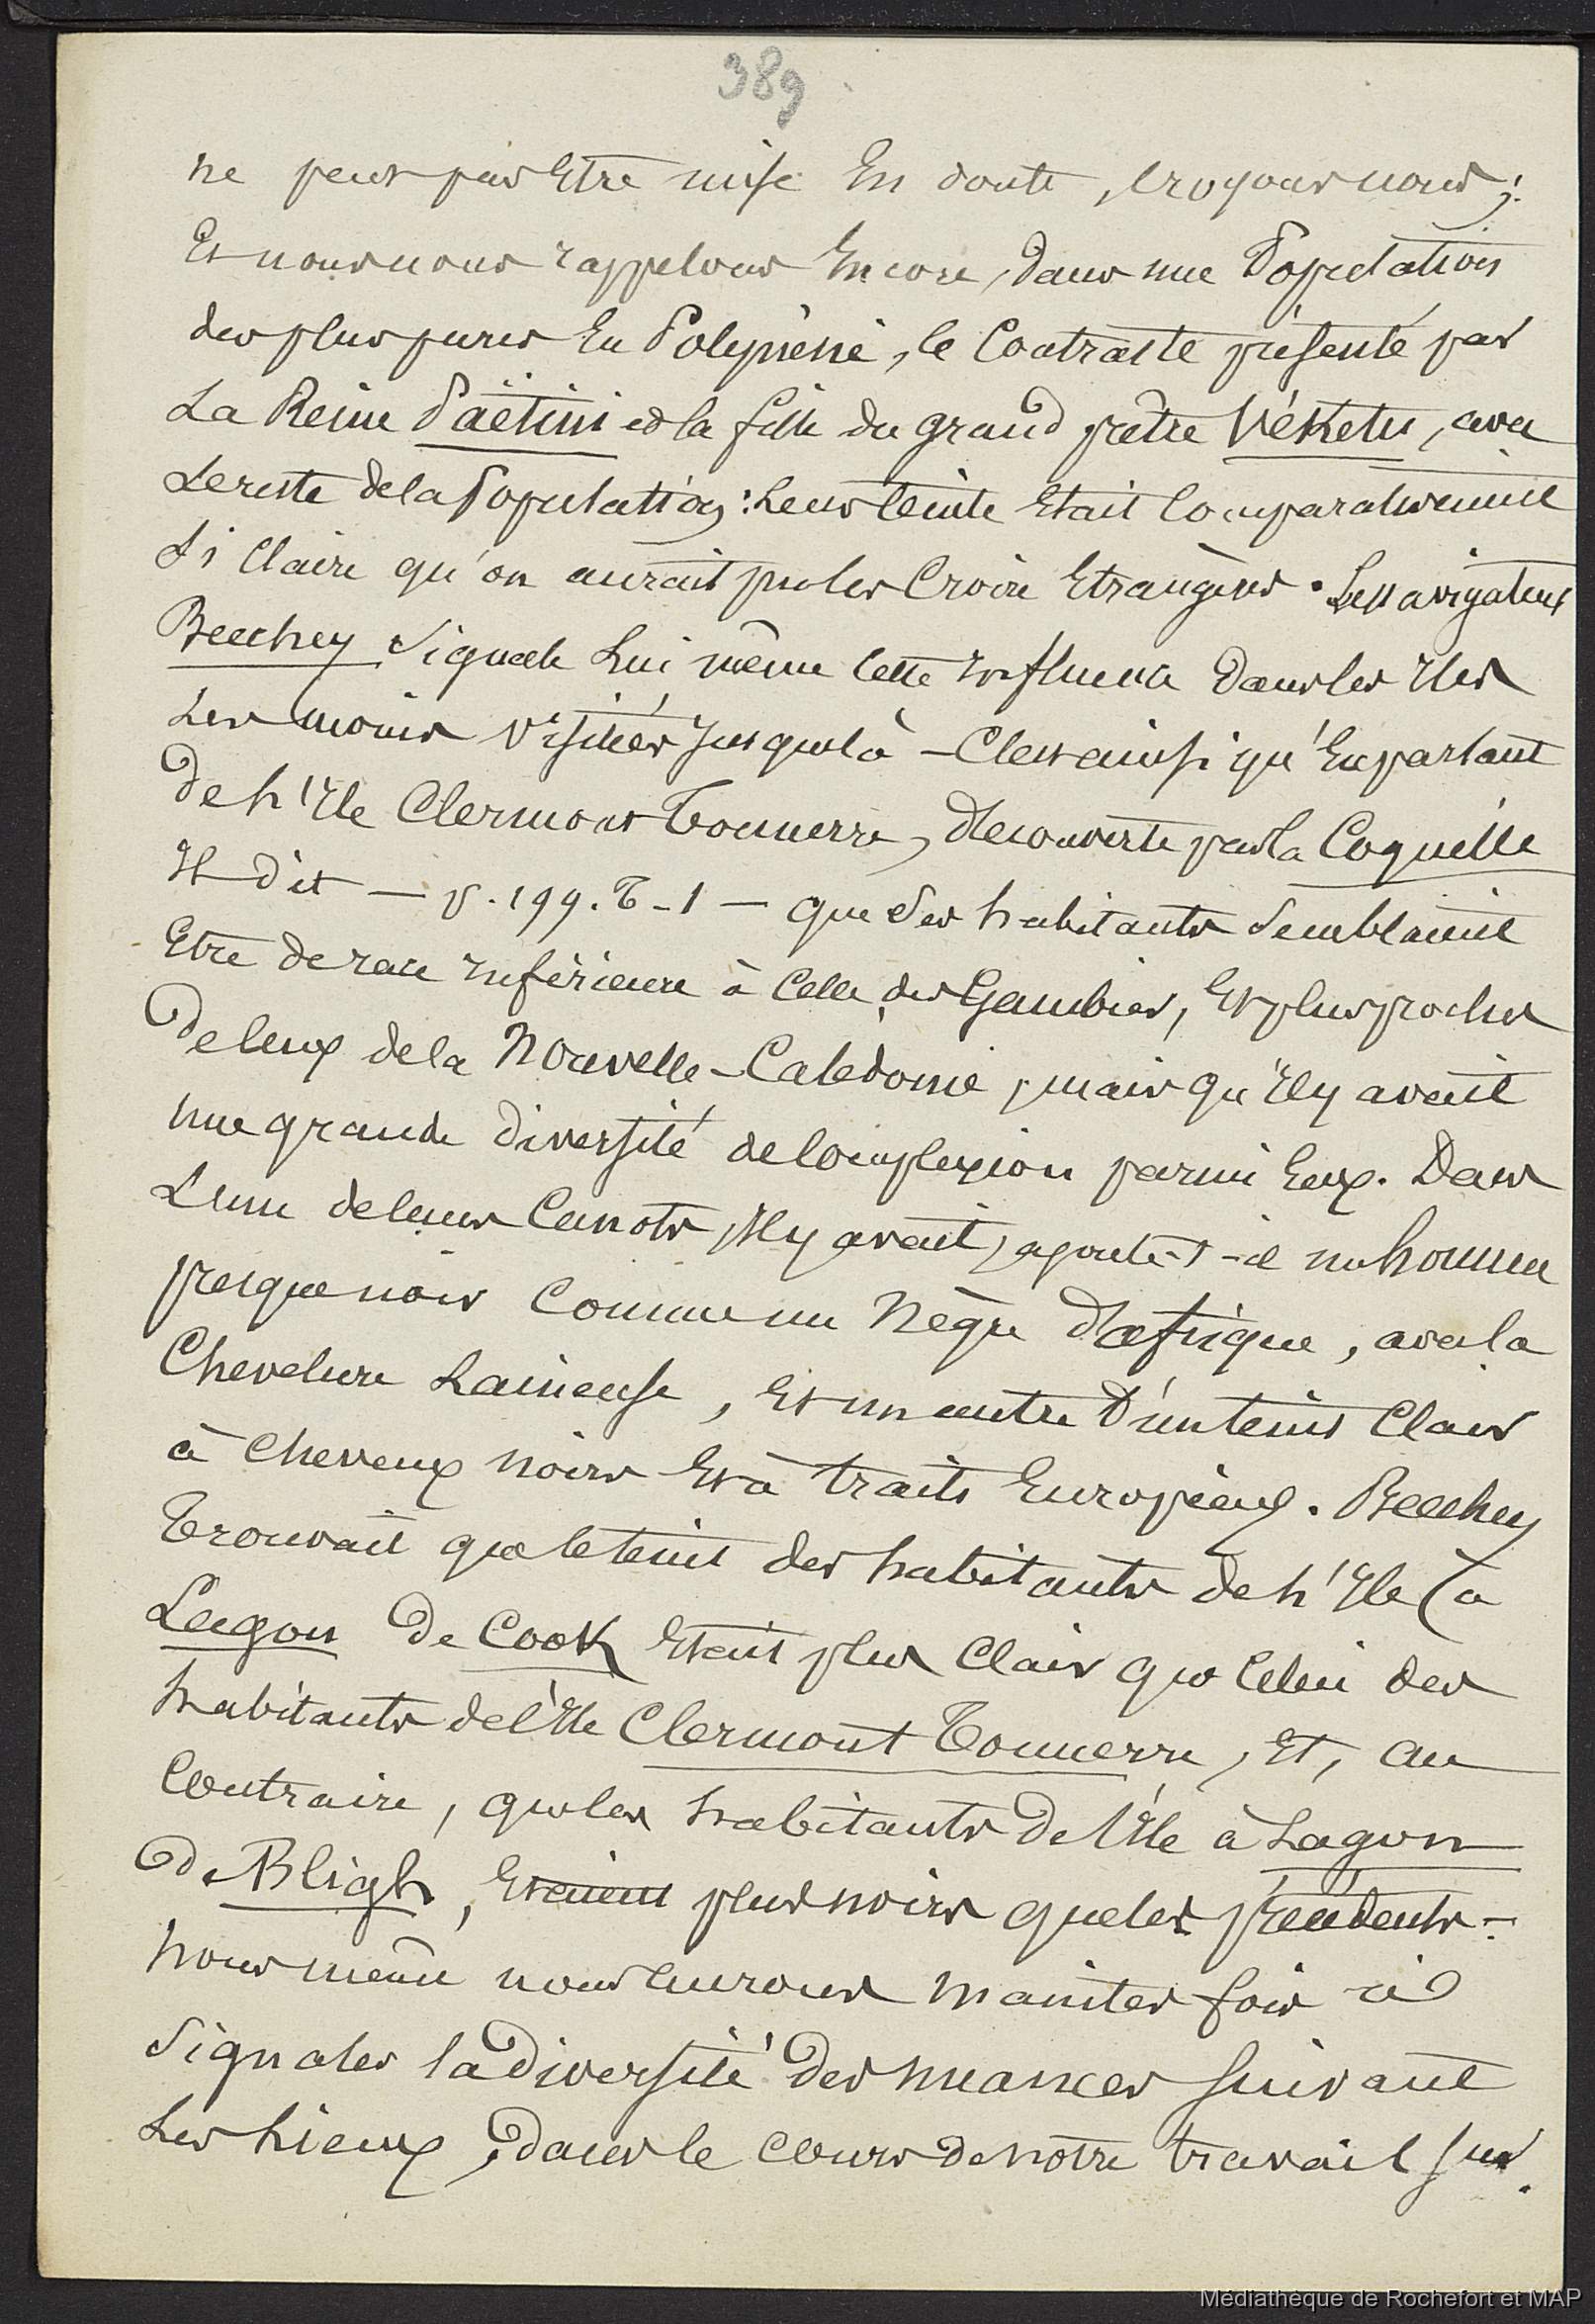 389
ne peut pas Etre mise En doute, croyons nous;
Et nous nous rappelons Encore, dans une Population
des plus pures En Polynésie, le Contraste présenté par
La Reine Païetini et la fille du grand prêtre Vékétu, avec
Le reste de la Population: Leur teinte Etait Comparativement
Si Claire qu'on aurait pu les Croire Etrangères. Le navigateur
Beechey Signale Lui même Cette Influence Dans les Iles
Les moins Visitées Jusque là - C'est ainsi qu'En parlant
De l'Ile Clermont Tonnerre, découverte par la Coquille
Il dit - p. 199. T-1 - que Ses habitants Semblaient
Etre de race Inférieure à Celle des Gambier, Et plus proches
De Ceux de la Nouvelle-Calédonie, mais qu'Il y avait
une grande Diversité de Complexion parmi Eux. Dans
L'un de leurs Canots, Il y avait, ajoute-t-il un homme
presque noir Comme un Nègre d'Afrique, avec la
Chevelure Laineuse, Et un autre D'un teint Clair
à Cheveux noirs Et à traits Européens. Beechey
Trouvait que le teint des habitants de l'Ile (à
Lagon De Cook Etait plus Clair que Celui des
habitants de l'Ile Clermont Tonnerre, Et, au
Contraire, que les habitants De l'Ile à Lagon
De Bligh, Etaient plus noirs que les précédents -
Nous même nous aurons maintes fois à
Signaler la Diversité Des nuances Suivant
Les Lieux, Dans le Cours De notre travail sur
Médiathèque de Rochefort et MAP